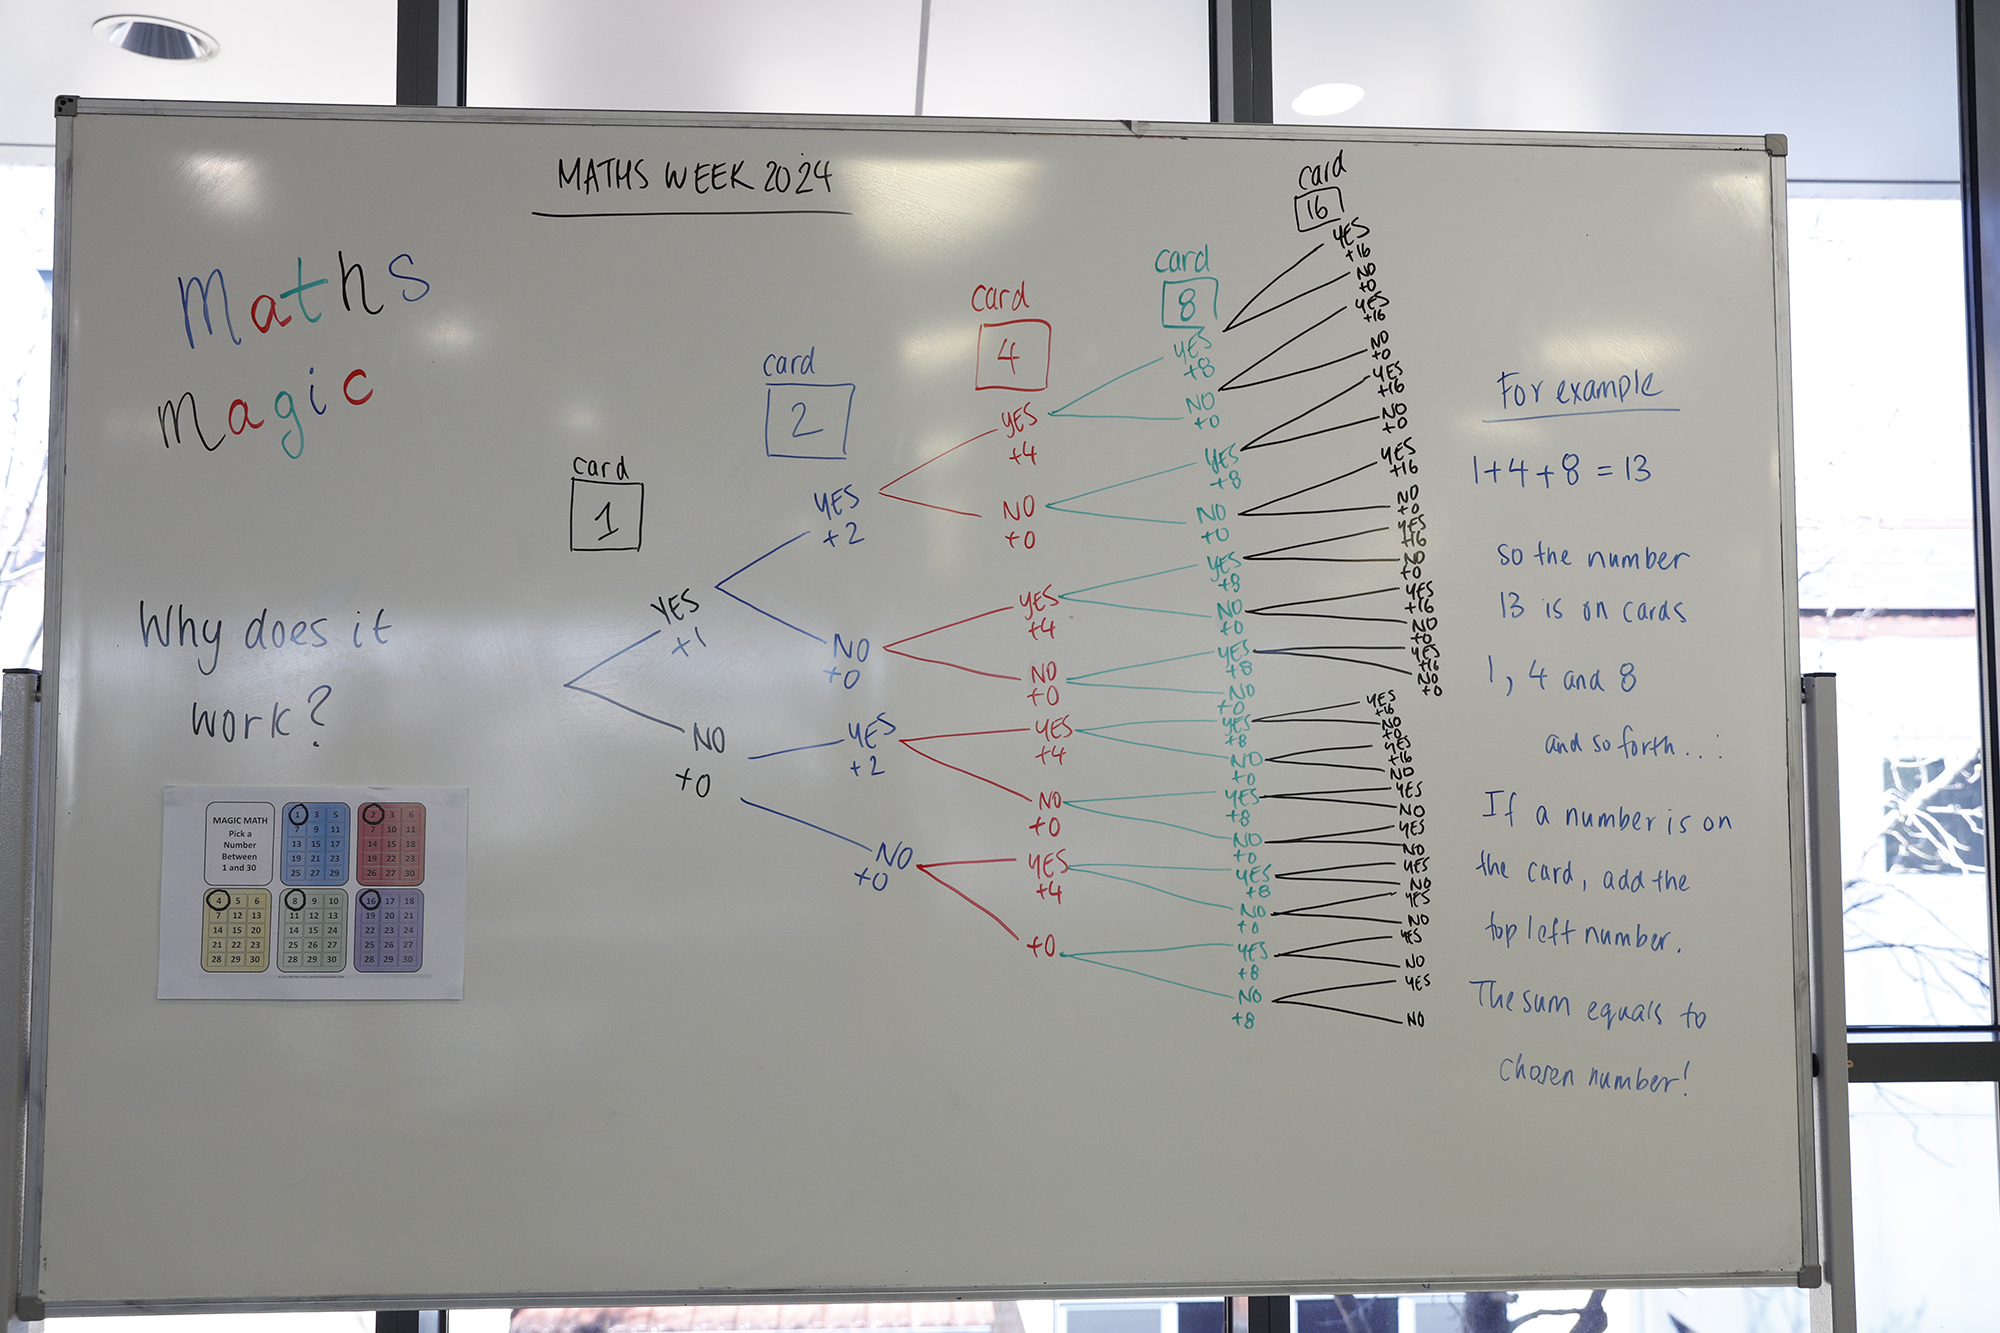 MATHS WEEK 2024
Maths
Magic
Why does it
work?
MAGIC MATH
Pick a
Number
Between
1 and 30
1 3 5
7 9 11
13 15 17
19 21 23
25 27 29
2 3 6
7 10 11
14 15 18
19 22 23
26 27 30
4 5 6
7 12 13
14 15 20
21 22 23
28 29 30
8 9 10
11 12 13
14 15 24
25 26 27
28 29 30
16 17 18
19 20 21
22 23 24
25 26 27
28 29 30
card
1
YES
+1
NO
+0
card
2
YES
+2
NO
+0
YES
+2
NO
+0
card
4
YES
+4
NO
+0
YES
+4
NO
+0
YES
+4
NO
+0
YES
+4
+0
card
8
YES
+8
NO
+0
YES
+8
NO
+0
YES
+8
NO
+0
YES
+8
NO
+0
YES
+8
NO
+0
YES
+8
NO
+0
YES
+8
NO
+0
YES
+8
NO
+8
card
16
YES
+16
NO
+0
YES
+16
NO
+0
YES
+16
NO
+0
YES
+16
NO
+0
YES
+16
NO
+0
YES
+16
NO
+0
YES
+16
NO
+0
YES
+16
NO
+0
YES
+16
NO
YES
NO
YES
NO
YES
NO
YES
NO
YES
NO
YES
NO
For example
1+4+8=13
so the number
13 is on cards
1, 4 and 8
and so forth...
If a number is on
the card, add the
top left number.
The sum equals to
chosen number!